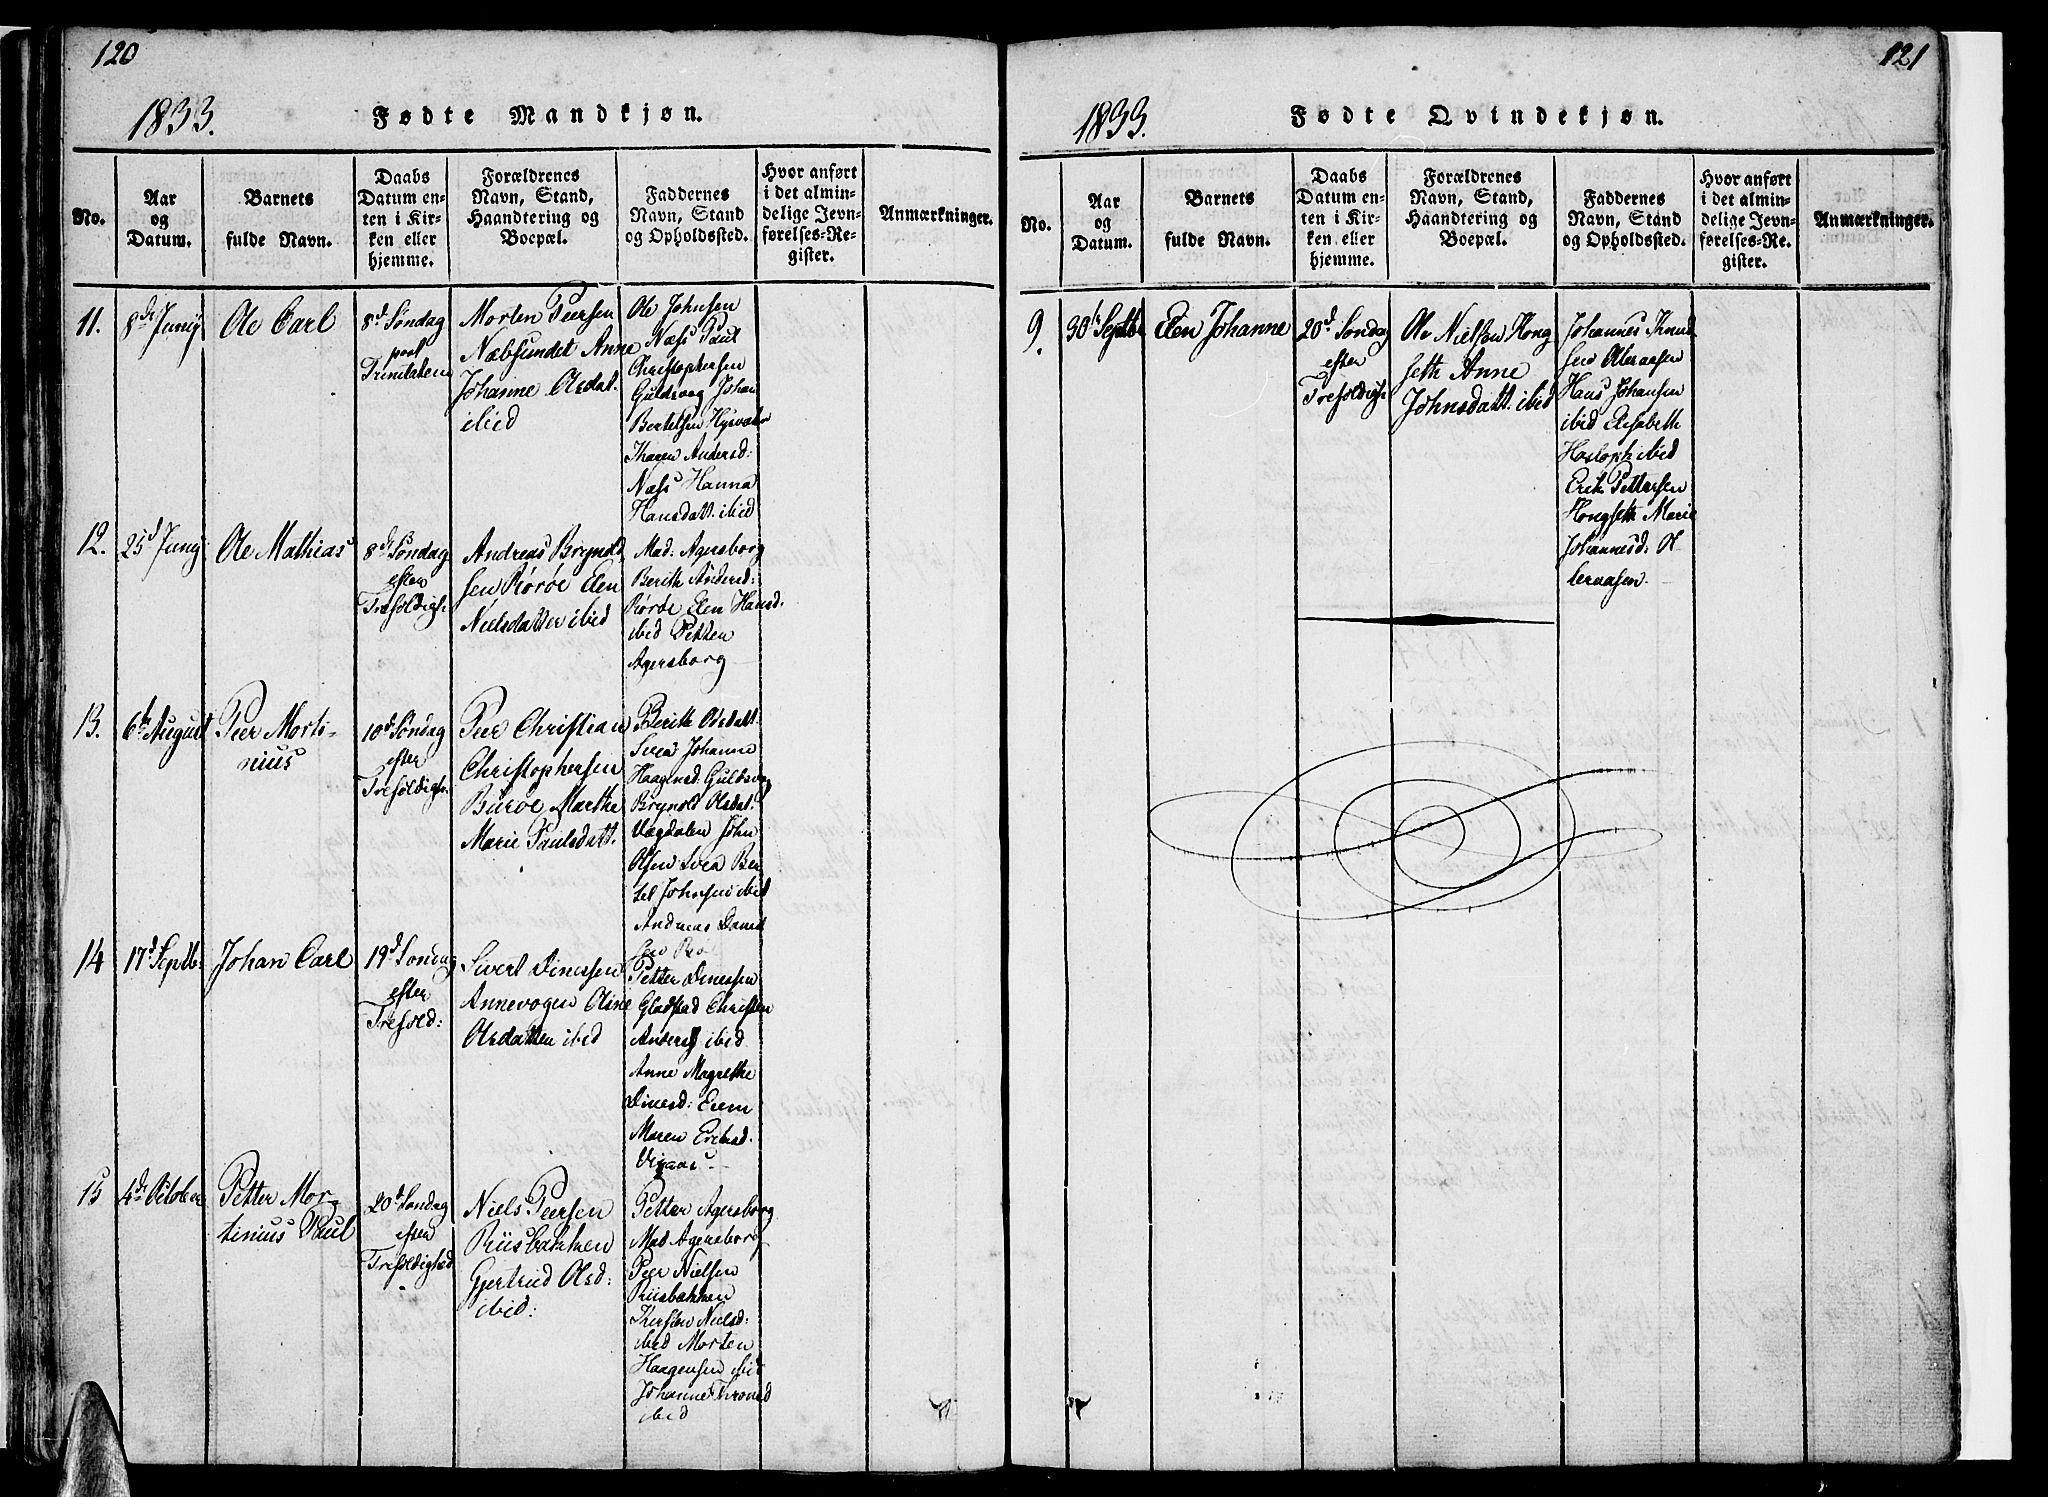 120
1833.
Fødte Mandkjøn.
No.
Aar
og
Datum.
Barnets
fulde Navn.
Daabs
Datum en-
ten i Kir-
ken eller
hjemme.
Forældrenes
Navn, Stand,
Haandtering og
Boepæl.
Faddernes
Navn, Stand
og Opholdssted.
Hvor anført
i det almin-
delige Jevn-
førelses-Re-
gister.
Anmærkninger.
11.
8de Junij
Ole Carl
8d Søndag
post
Trinitatem
Morten Peersen
Næbsundet Anne
Johanne Olsdat.
ibid
Ole Johnsen
Næss Paul
Christophersen
Guldvog Johan
Bertelsen Hysvær
Karen Andersd:
Næss Hanna
Hansdatt. ibid
12.
25d Junij
Ole Mathias
8d Søndag
efter
Trefoldigh.
Andreas Brynild
sen Rørøe Elen
Nielsdatter ibid
Mad: Agersborg
Berith Andersd:
Rørøe Elen Hansd:
ibid Petter
Agersborg
13.
6te August
Peer Morti-
nius
10d Søndag
efter
Trefoldigh.
Peer Christian
Christophersen
Burøe Marthe
Marie Paulsdatt.
Berith Olsdatt.
Svea Johanne
Haagensd: Guldsvog
Brynold Olsdat.
Vægdalen John
Olsen Svea Ber
tel Johnsen ibid
Andreas Daniel
sen
14
17d Septb:
Johan Carl
19d Søndag
efter
Trefold:
Sivert Dinessen
Annevogen Oline
Olsdatten ibid
Petter Dinessen
Gladstad Christen
Anders ibid
Anne Magrethe
Dinesd: Erem
Maren Ericksd.
15
4de October
Petter Mor-
tinius Paul
20d Søndag
efter
Trefoldighed
Niels Peersen
Riisbakken
Gjertrud Olsd:
ibid:
Petter Agersborg
Mad Agersborg
Peer Nielsen
Riisbakken
Kersten Nielsd:
ibid Morten
Haagensen ibid
Johanne Tronsd
ibid
121
1833.
Fødte Qvindekjøn.
No.
Aar
og
Datum.
Barnets
fulde Navn.
Daabs
Datum en-
ten i Kir-
ken eller
hjemme.
Forældrenes
Navn, Stand,
Haandtering og
Boepæl.
Faddernes
Navn, Stand
og Opholdssted.
Hvor anført
i det almin-
delige Jevn-
førelses-Re-
gister.
Anmærkninger.
9.
30te Septbr
Elen Johanne
20d Søndag
efter
Trefoldigh.
Ole Nielsen Hong
seth Anne
Johnsdatt. ibid
Johannes Knud
sen Oleraasen
Hans Johansen
ibid Elisabeth
Hosloph ibid
Erik Pettersen
Hongseth Marie
Johannesd: Ol-
leraasen